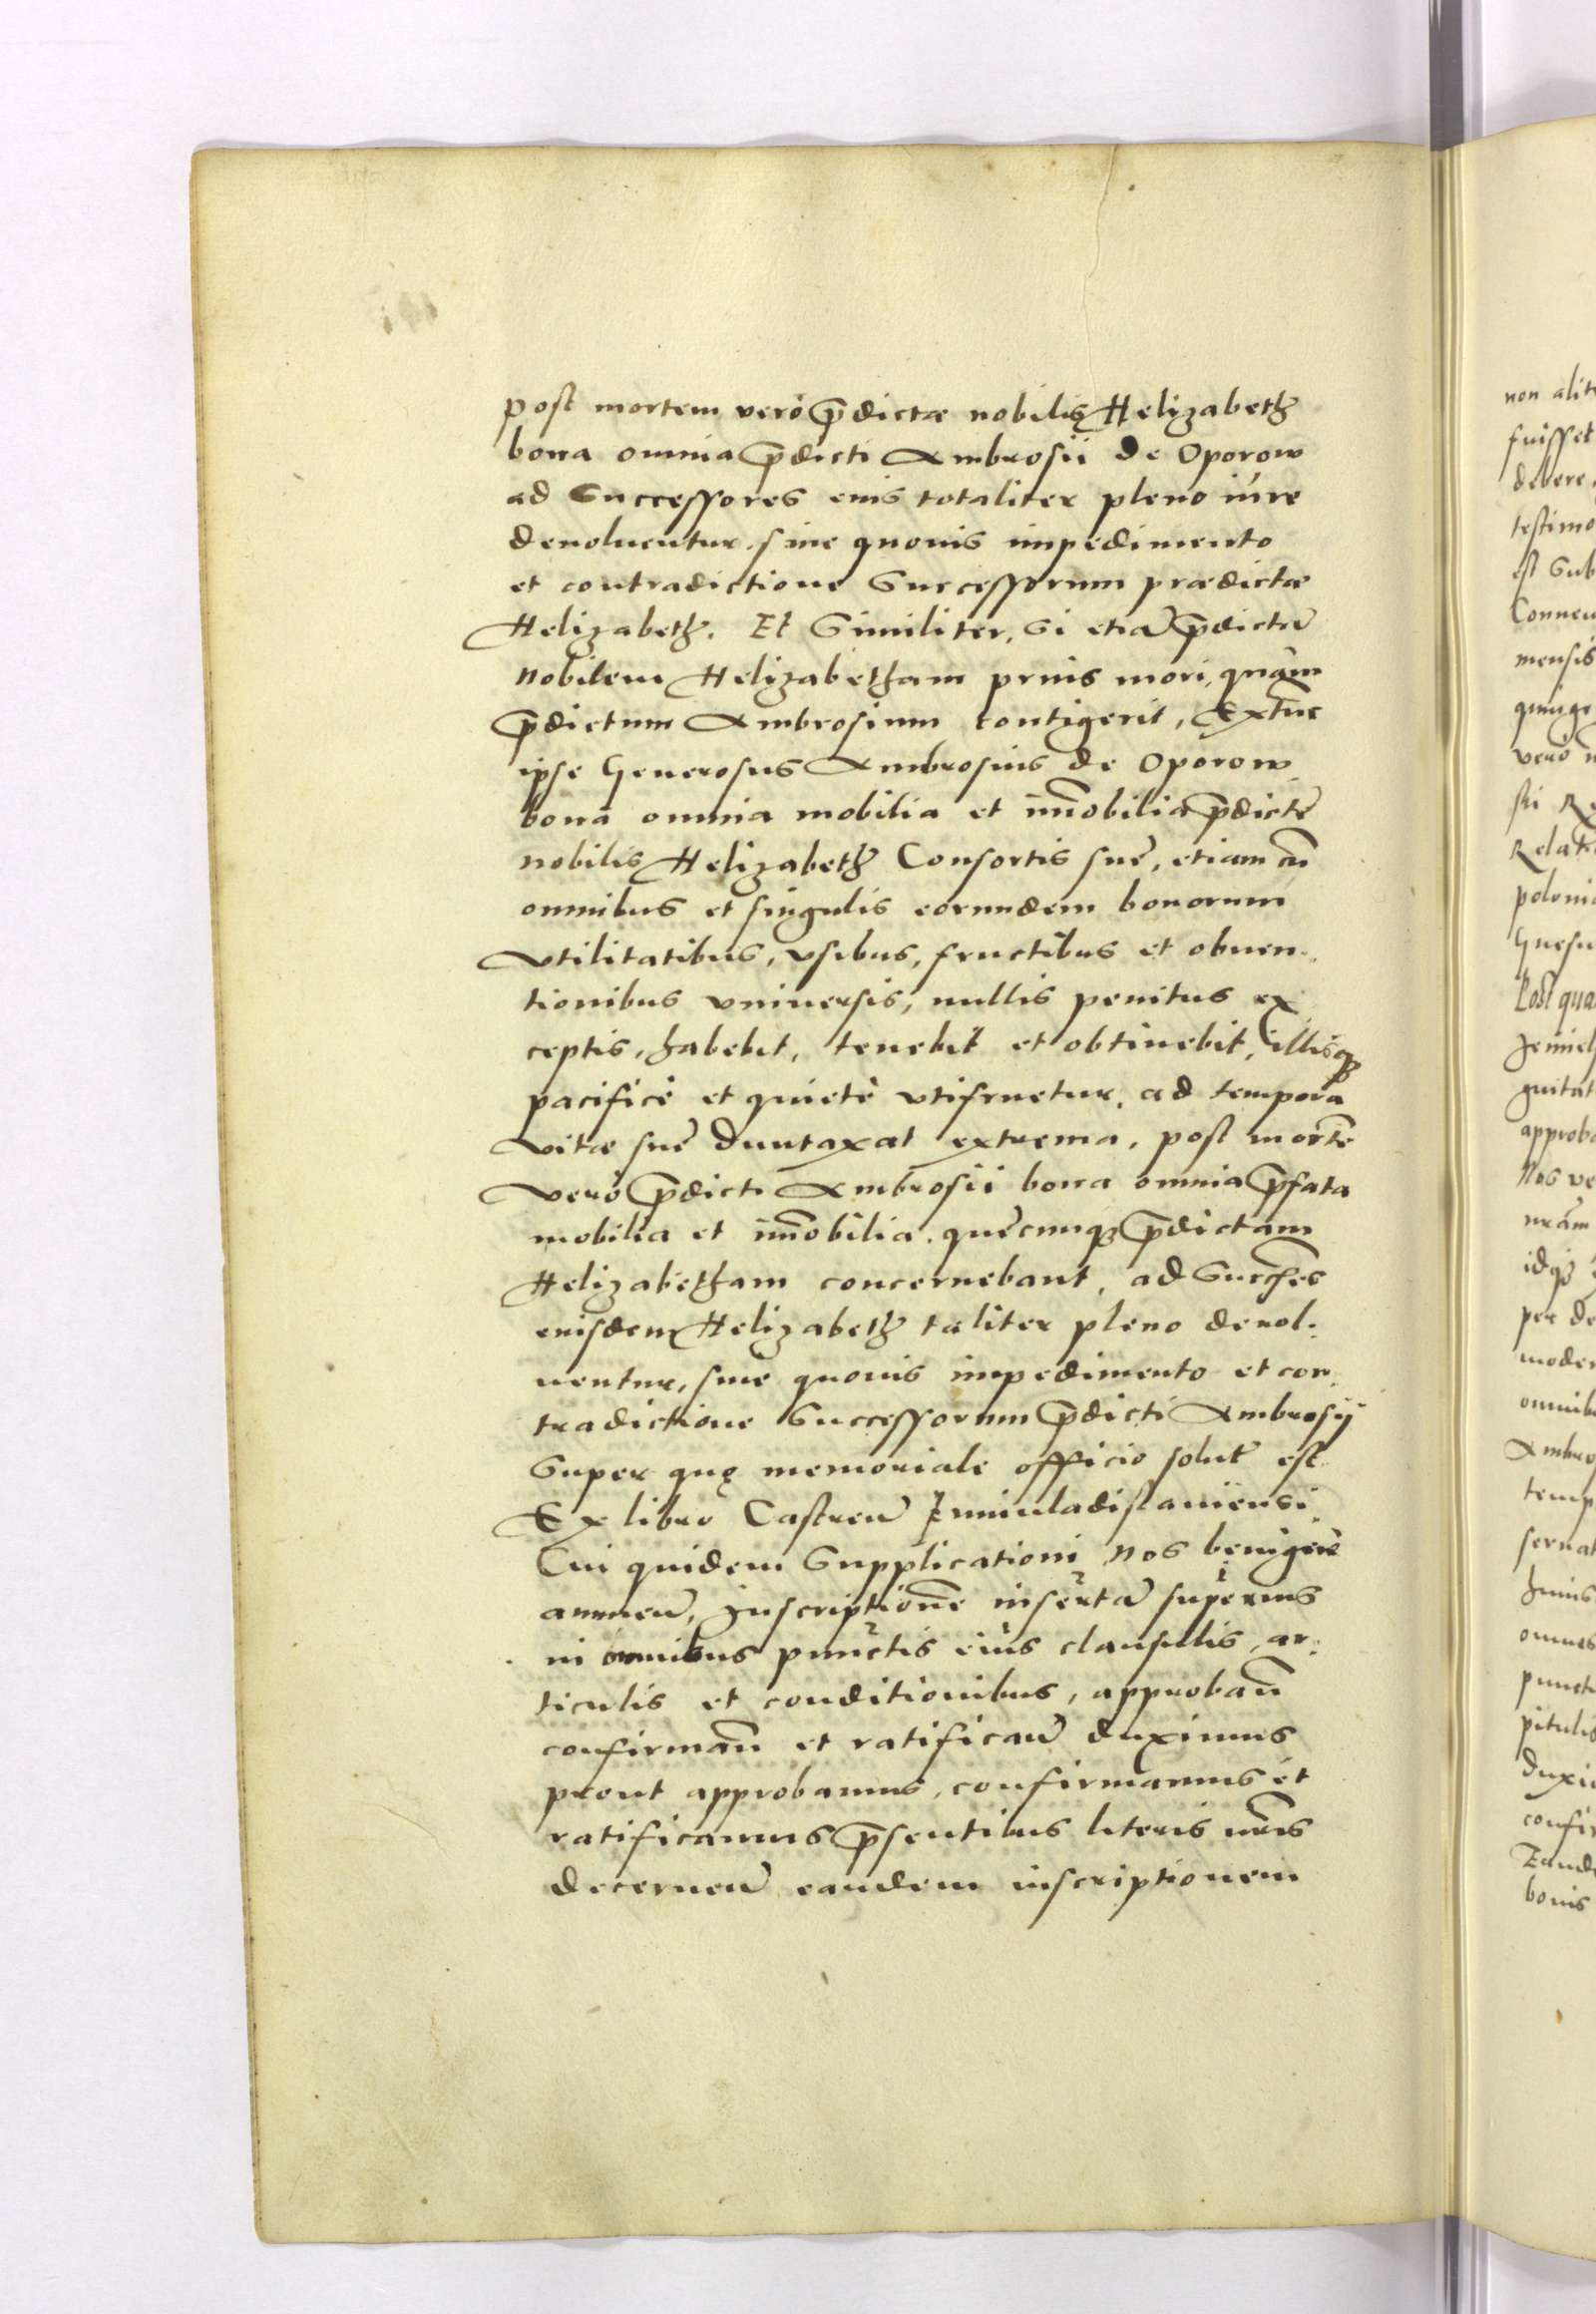 post mortem verò p̄dictæ nobilis Helizabeth
bona omnia p̄dicti Ambrosii de Oporow
ad Successores eius totaliter pleno iúre
deuoluentur, sine quouis impedimento
et contradictione Successorum prædictæ
Helizabeth. Et Similiter, si etiā p̄dictā
nobilem Helizabetham prius mori, quàm
p̄dictum Ambrosium contigerit, Extūc
ipse Generosus Ambrosius de Oporow
bona omnia mobilia et im̄obilia p̄dictę
nobilis Helizabeth Consortis suę, etiam cū
omnibus et singulis eorundem bonorum
vtilitatibus, vsibus, fructibus et obuen-
tionibus vniuersis, nullis penitus ex
ceptis, habebit, tenebit et obtinebit, illisq3
pacificè et quietè vtifruetur, ad tempora
vitæ suę duntaxat extrema, post mortē
verò p̄dicti Ambrosii bona omnia p̄fata
mobilia et im̄obilia, quęcunq3 p̄dictam
Helizabetham concernebant, ad Succ̄res
eiusdem Helizabeth taliter pleno deuol-
uentur, sine quouis impedimento et con-
tradictione Successorum p̄dicti Ambrosij
Super quę memoriale officio solut̄ est
Ex libro Castreñ Iuniuladislauiensi.
Cui quidem Supplicationi nos benignè
annueñ, Inscriptionē insertā superius
in omnibus punctis eius clausulis, ar-
ticulis et conditionibus, approbañ
confirmañ et ratificañ duximus
prout approbamus, confirmamus et
ratificamus p̄sentibus literis n̄ris
decerneñ eandem inscriptionem
non alit
fuisset
debere,
testimo
est Sub
Conuen
mensis
quinge
verò n
sti R
Relati
poloni
Gnesn
Post qua
Heniel
gnitat
approba
Nos ve
nr̄am
idq3
per de
moder
omnib
Ambro
temp
seruat
huius
omnes
punct
pitulis
duxi
confir
Eande
bonis